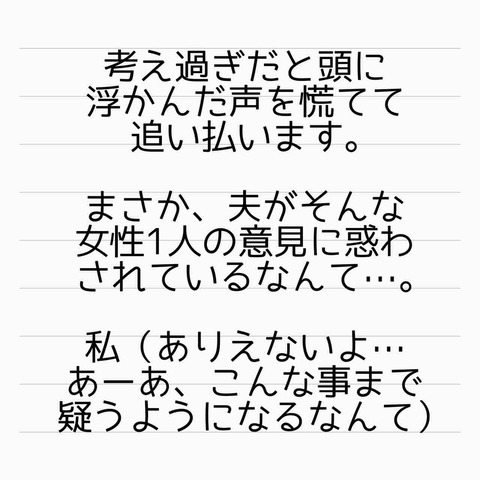 考え過ぎだと頭に
浮かんだ声を慌てて
追い払います。
まさか、夫がそんな
女性1人の意見に惑わ
されているなんて…。
私（ありえないよ…
あーあ、こんな事まで
疑うようになるなんて）